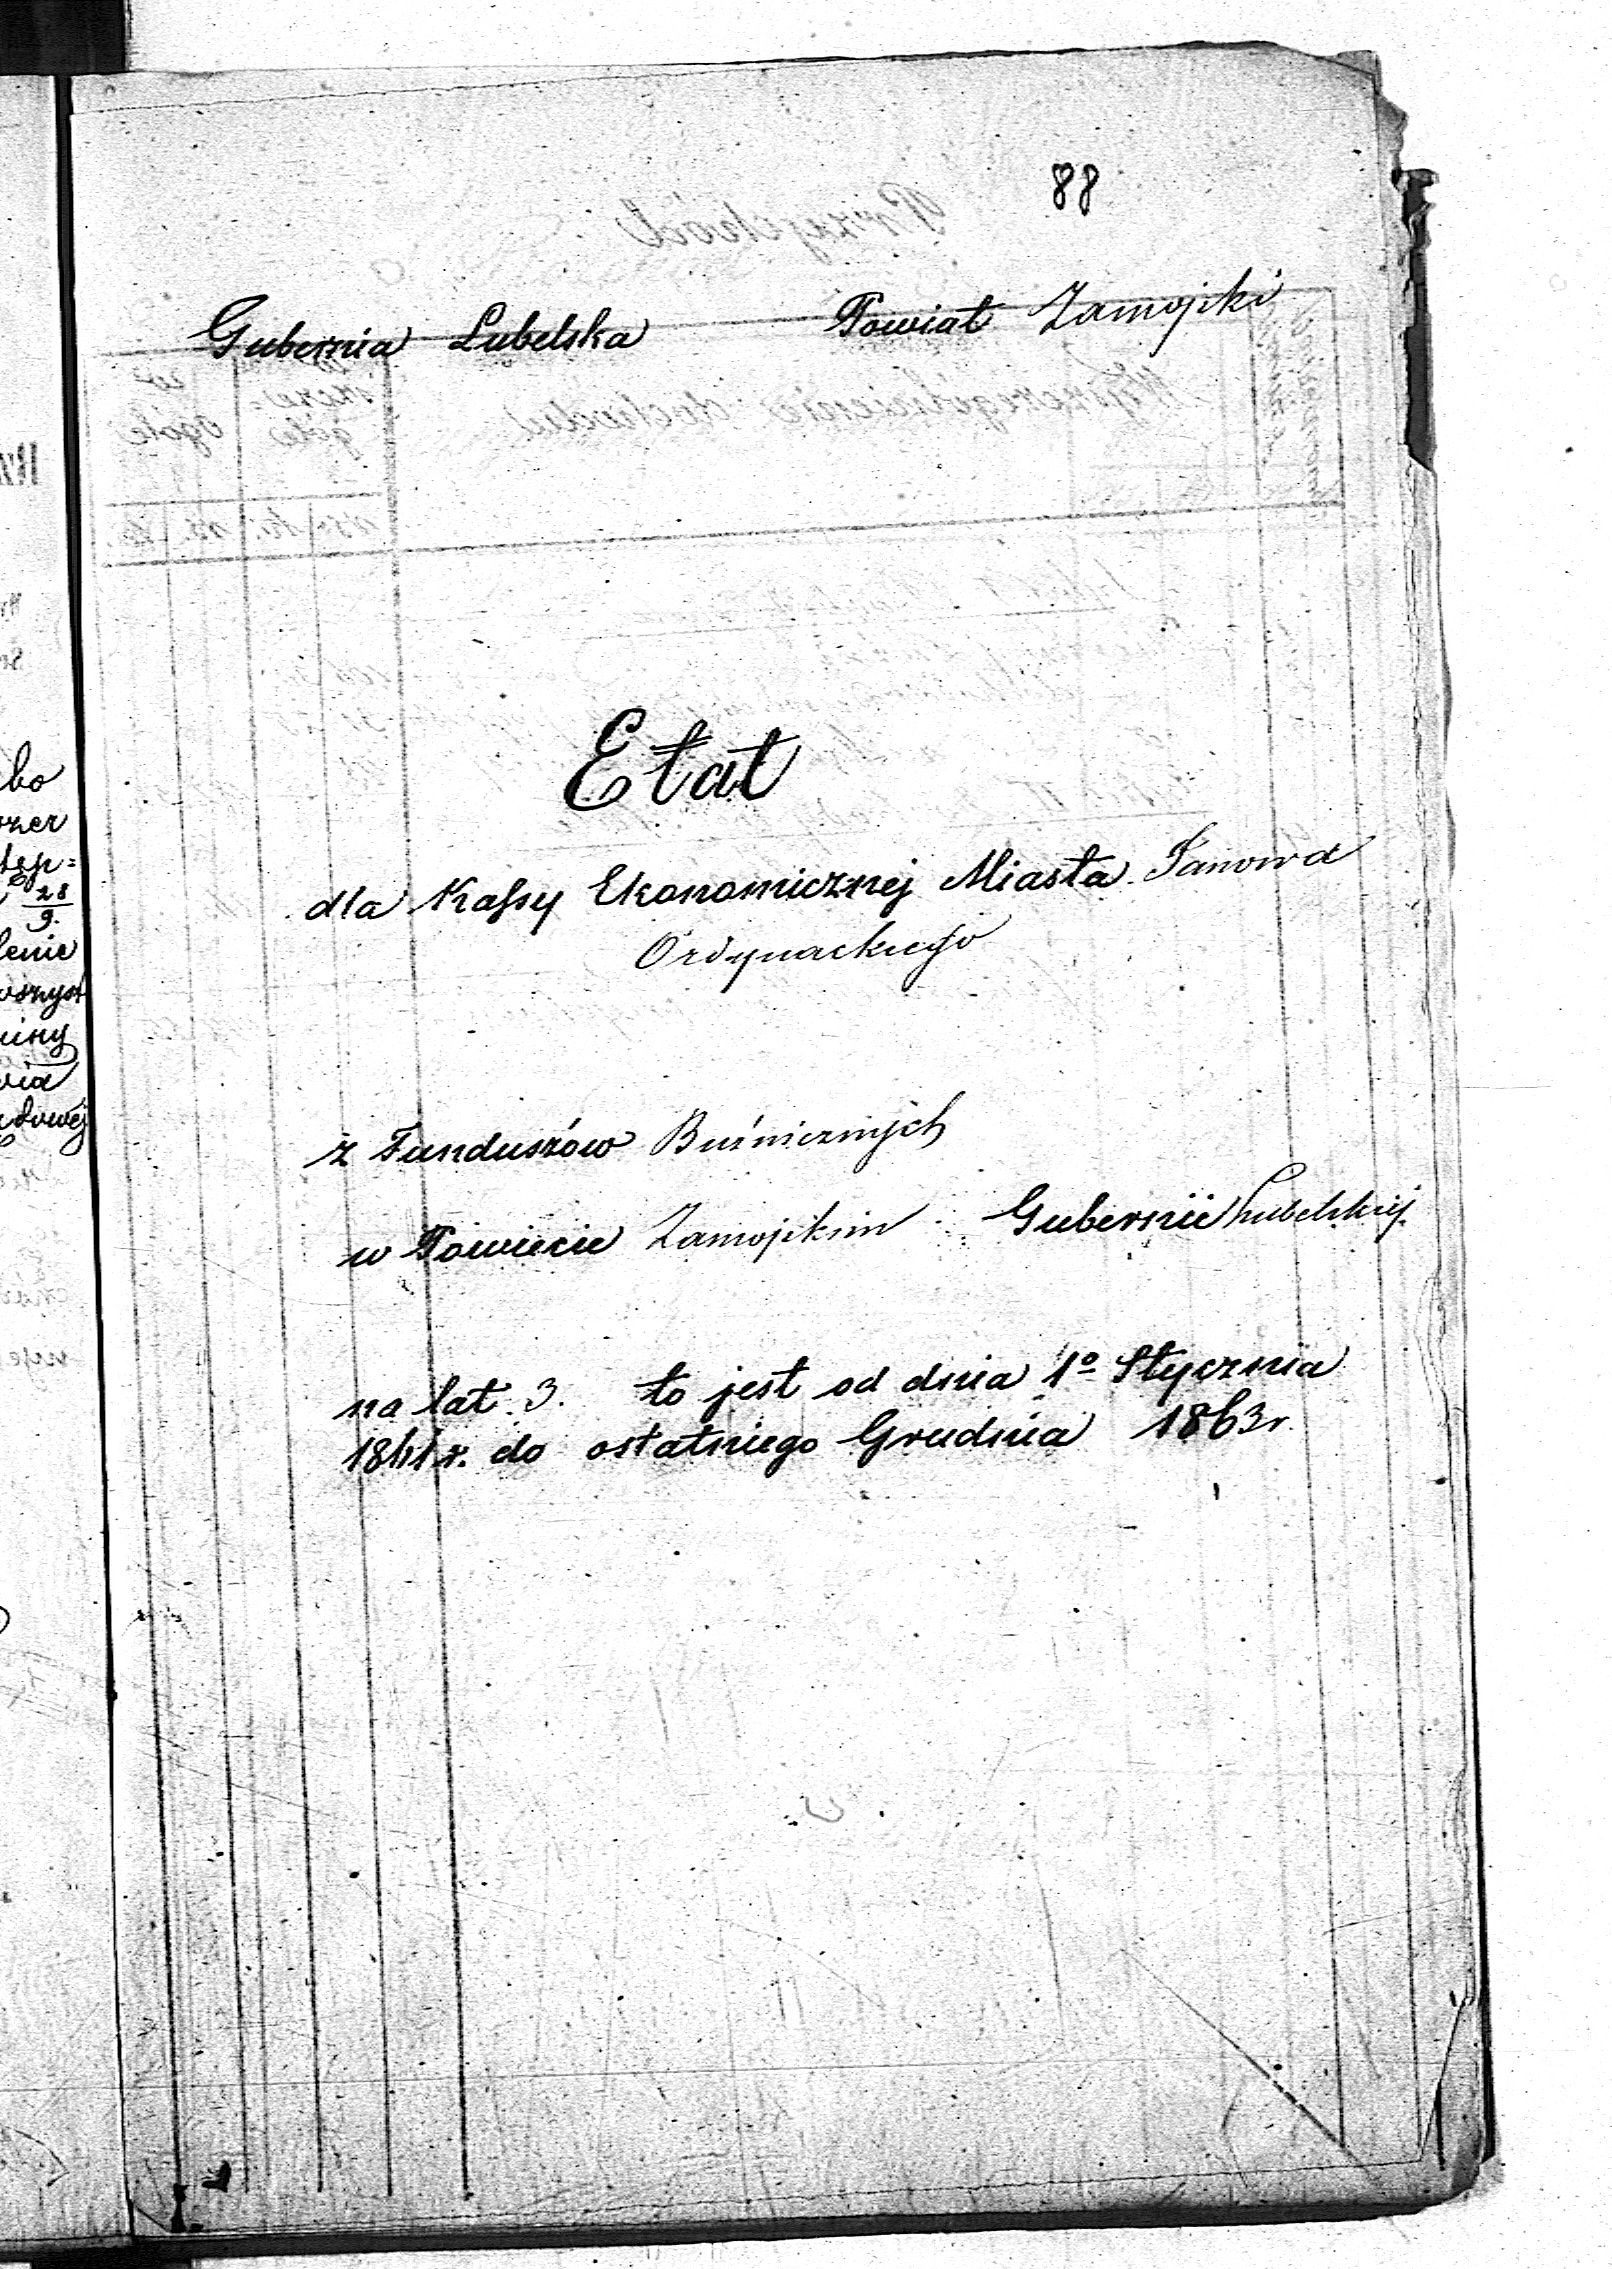 88
Gubernia Lubelska Powiat Zamojski
Etat
dla Kassy Ekonomicznej Miasta Janowa
Ordynackiego
z Funduszów Bużnicznych
w Powiecie Zamojskim Gubernii Lubelskiej
na lat 3. to jest od dnia 1º Stycznia
1861 r. do ostatniego Grudnia 1863 r.